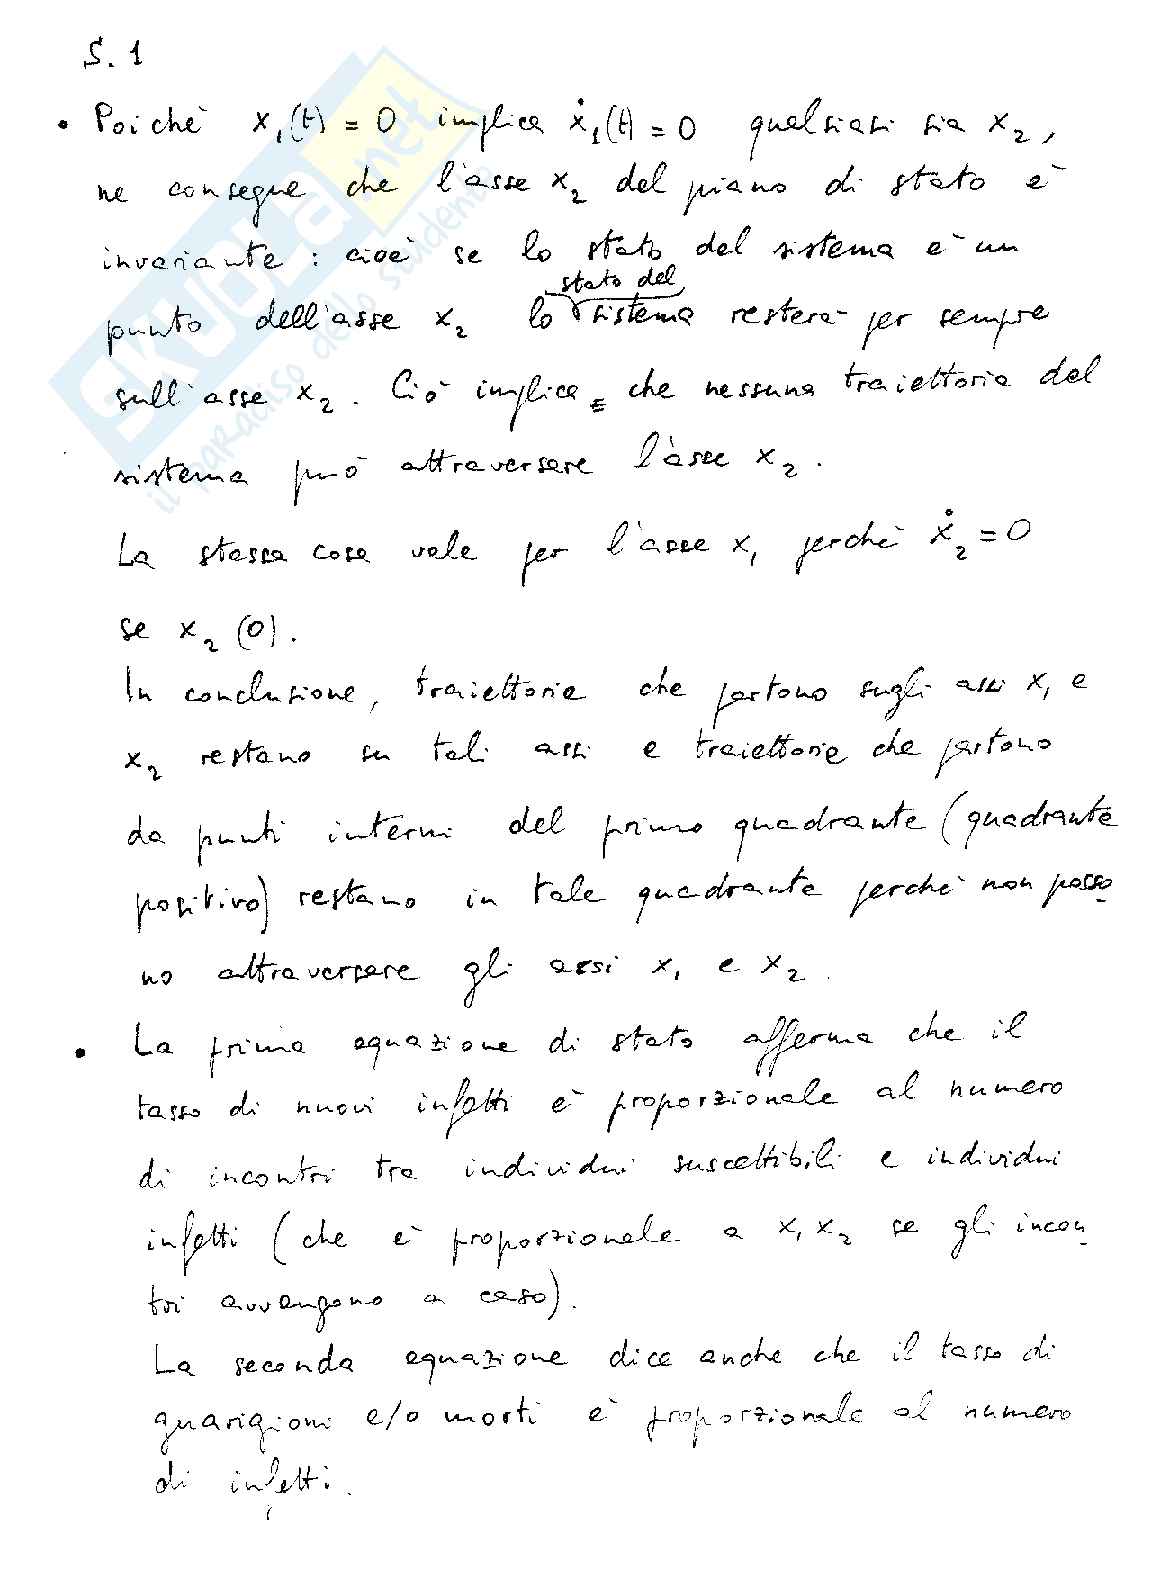 S. 1
• Poichè x₁(t) = 0 implica ẋ₁(t) = 0 qualsiasi sia x₂,
ne consegue che l'asse x₂ del piano di stato è
invariante : cioè se lo stato del sistema è un
stato del
punto dell'asse x₂ lo sistema resterà per sempre
sull'asse x₂. Ciò implica che nessuna traiettoria del
sistema può attraversare l'asse x₂.
La stessa cosa vale per l'asse x₁ perchè ẋ₂ = 0
se x₂(0).
In conclusione, traiettorie che partono sugli assi x₁ e
x₂ restano su tali assi e traiettorie che partono
da punti interni del primo quadrante (quadrante
positivo) restano in tale quadrante perchè non posso
no attraversare gli assi x₁ e x₂.
• La prima equazione di stato afferma che il
tasso di nuovi infetti è proporzionale al numero
di incontri tra individui suscettibili e individui
infetti (che è proporzionale a x₁x₂ se gli incon
tri avvengono a caso).
La seconda equazione dice anche che il tasso di
guarigioni e/o morti è proporzionale al numero
di infetti.
SKUOLA.net
il paradiso dello studente